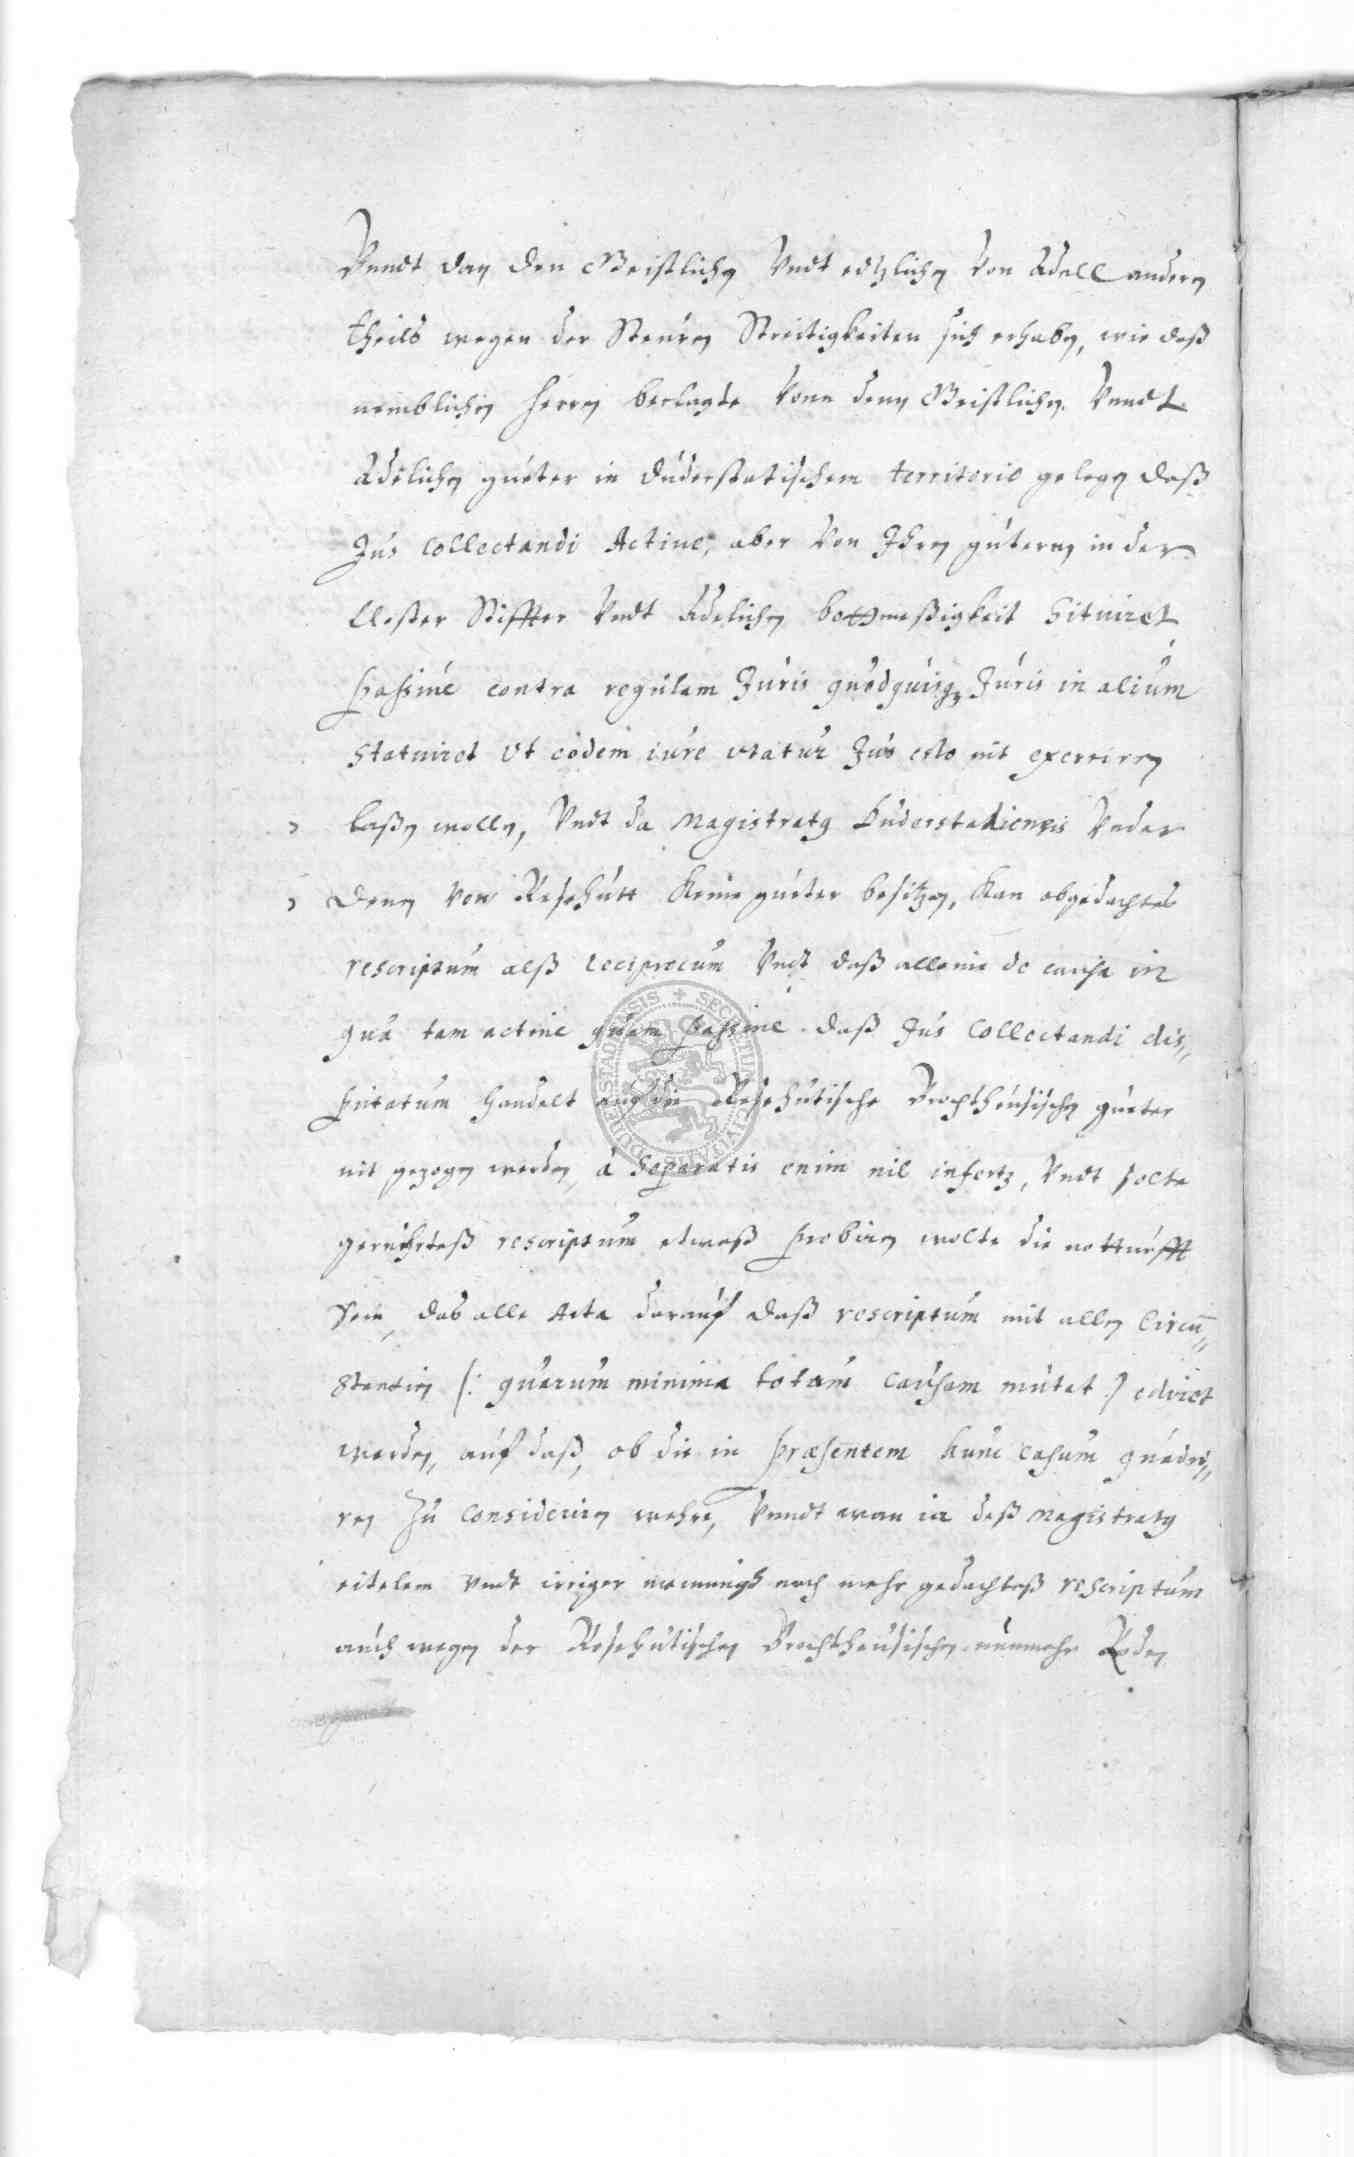 Vnndt dan den Geistlichen Vndt etzlichen Von Adell andern
theils wegen der Steuren Streitigkeiten sich erhaben, wie daß
nemblichen herrn beclagte Vonn denn Geistlichen Vnndt
Adelichen güeter in düderstatischem territorio gelegen daß
Jus Collectandi Actiue, aber Von Ihren gütern in der
Clöster Stiffter Vndt Adelichen bottmeßigkeit situiret
passiué contra regulam Juris quodquisq Juris in alium
Statuiret Vt eodem iure vtatur Jus esto nit exerciren
laßen wollen, Vndt da Magistratus Duderstadiensis Vnder
denen Von Resehütt keine güeter besitzen, kan obgedachtes
rescriptum alß reciprocum Vndt daß alleine de causa in
qua tam actiue quam passiue daß Jus Collectandi dis„
putatum handelt auf die Resehütische Brochthüsischen güeter
nit gezogen werden, à separatis enim nil infertur, Vndt solte
gerührteß rescriptum etwaß probiren wolte die notturfft
sein, das alle Acta darauf daß rescriptum mit allen Circū„
stantien (: quarum minima totam causam mutat :) ediret
werden, auf daß, ob die in præsentem hunc casum quadri„
ren zu consideriren wehre, Vnndt wan in deß Magistratus
eitelem Vndt irriger meinungh noch mehr gedachteß rescriptum
auch wegen der Resehütischen Brochthausischen nunmehr Roden